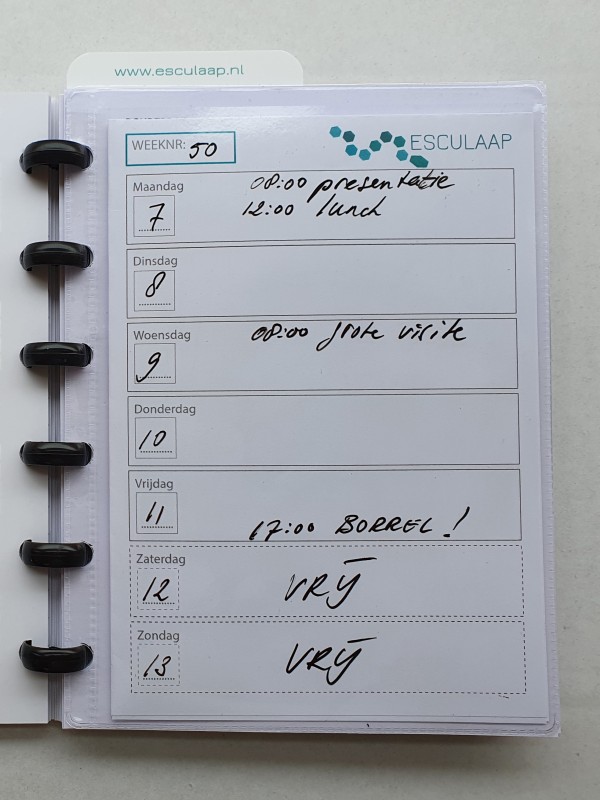 www.esculaap.nl
WEEKNR: 50
ESCULAAP
Maandag
7
08:00 presentatie
12:00 lunch
Dinsdag
8
Woensdag
9
08:00 grote visite
Donderdag
10
Vrijdag
11
17:00 BORREL!
Zaterdag
12
VRIJ
Zondag
13
VRIJ